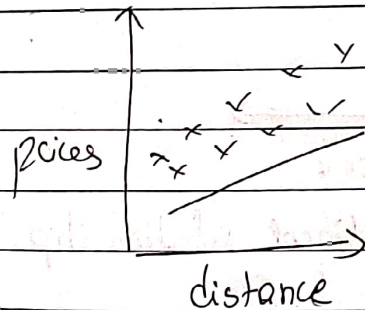 prices
distance